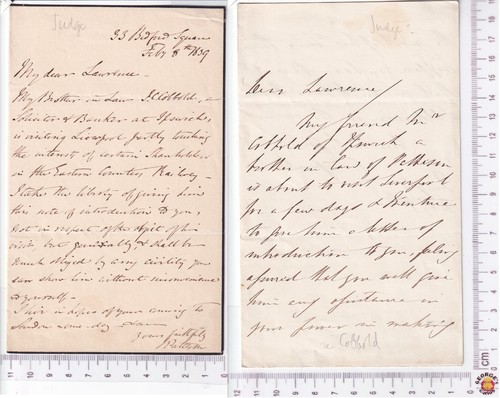 Judge
33 Bedford Square
Feby 8th 1839
My dear Lawrence -
My Brother in Law J. Cobbold, a
Solicitor & Banker at Ipswich,
is visiting Liverpool partly touching
the interest of certain Shareholders
in the Eastern Counties Railway -
I take the liberty of giving him
this note of introduction to you,
not in respect of the object of his
visit but generally & shall be
much obliged by any civility you
can show him without inconvenience
to yourself -
I live in hopes of your coming to
London some day
yours faithfully
J Patteson
Judge?
Dear Lawrence
My friend Mr
Cobbold of Ipswich a
brother in law of Patteson
is about to visit Liverpool
for a few days & I venture
to give him a letter of
introduction to you feeling
assured that you will give
him any assistance in
your power in making
Cobbold
12 11 10 9 8 7 6 5 4 3 2 1 0
12 11 10 9 8 7 6 5 4 3 2 1 0
cm
GEORGE